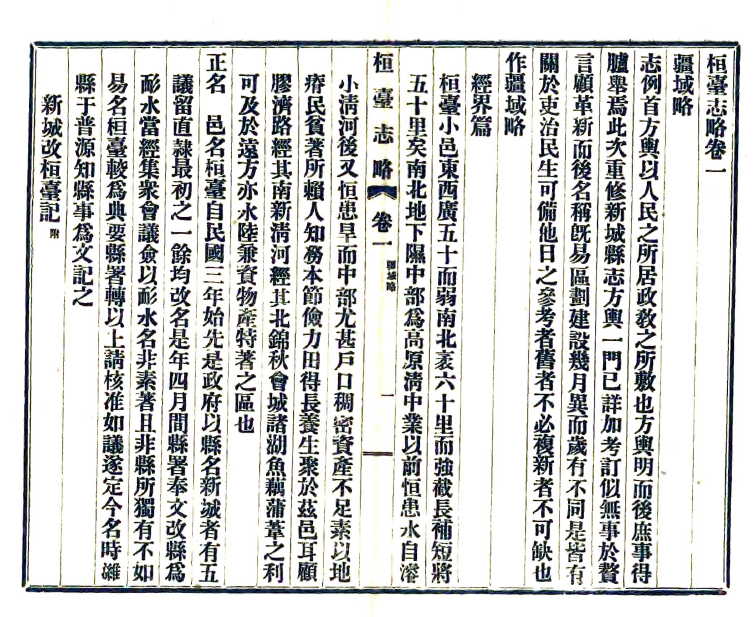 桓臺志略卷一
疆域略
志例首方輿以人民之所居政敎之所敷也方輿明而後庶事得
臚舉焉此次重修新城縣志方輿一門已詳加考訂似無事於贅
言顧革新而後名稱旣易區劃建設幾月異而歲有不同是皆有
關於吏治民生可備他日之參考者舊者不必複新者不可缺也
作疆域略
經界篇
桓臺小邑東西廣五十而弱南北袤六十里而強截長補短將
五十里矣南北地下隰中部爲高原淸中業以前恒患水自濬
桓臺志略 卷一 疆域略 一
小淸河後又恒患旱而中部尤甚戶口稠密資產不足素以地
瘠民貧著所賴人知務本節儉力田得長養生聚於茲邑耳顧
膠濟路經其南新淸河經其北錦秋會城諸湖魚藕蒲葦之利
可及於遠方亦水陸兼資物產特著之區也
正名 邑名桓臺自民國三年始先是政府以縣名新城者有五
議留直隸最初之一餘均改名是年四月間縣署奉文改縣爲
耏水當經集衆會議僉以耏水名非素著且非縣所獨有不如
易名桓臺較爲典要縣署轉以上請核准如議遂定今名時濰
縣于普源知縣事爲文記之
新城改桓臺記 附